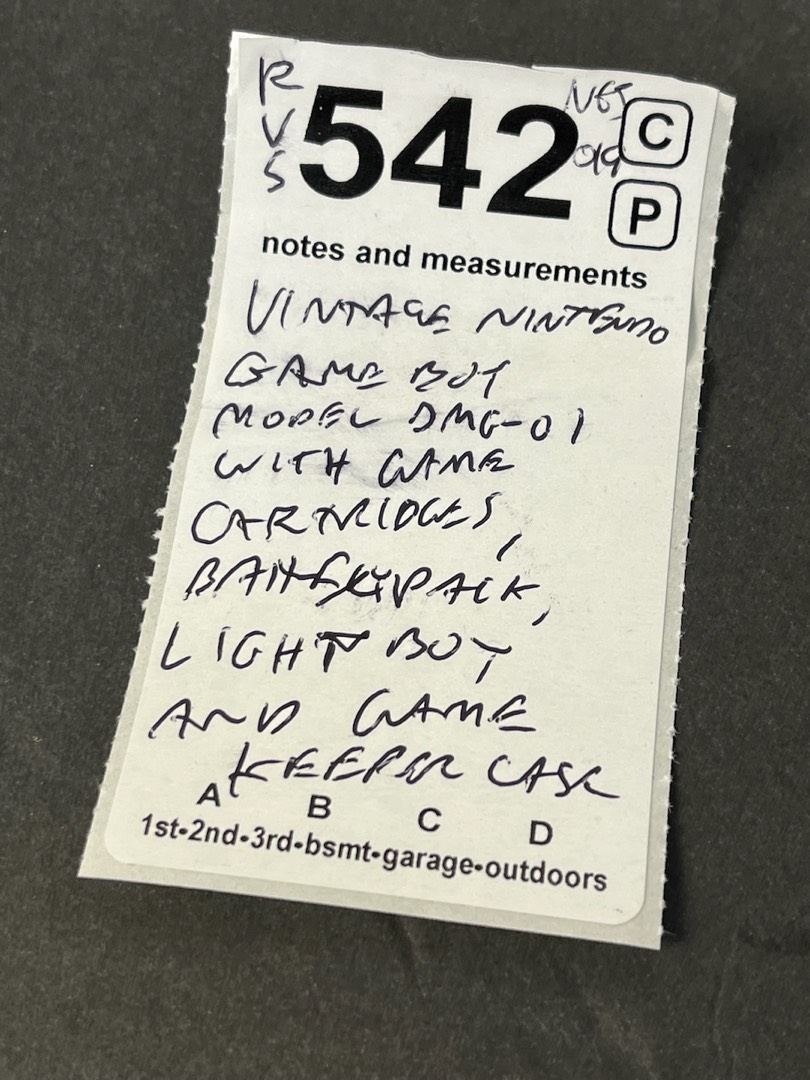 RVS
542
C
P
notes and measurements
VINTAGE NINTENDO
GAME BOY
MODEL DMG-01
WITH GAME
CARTRIDGES,
BATTERY PACK,
LIGHT BOY
AND GAME
KEEPER CASE
A B C D
1st•2nd•3rd•bsmt•garage•outdoors